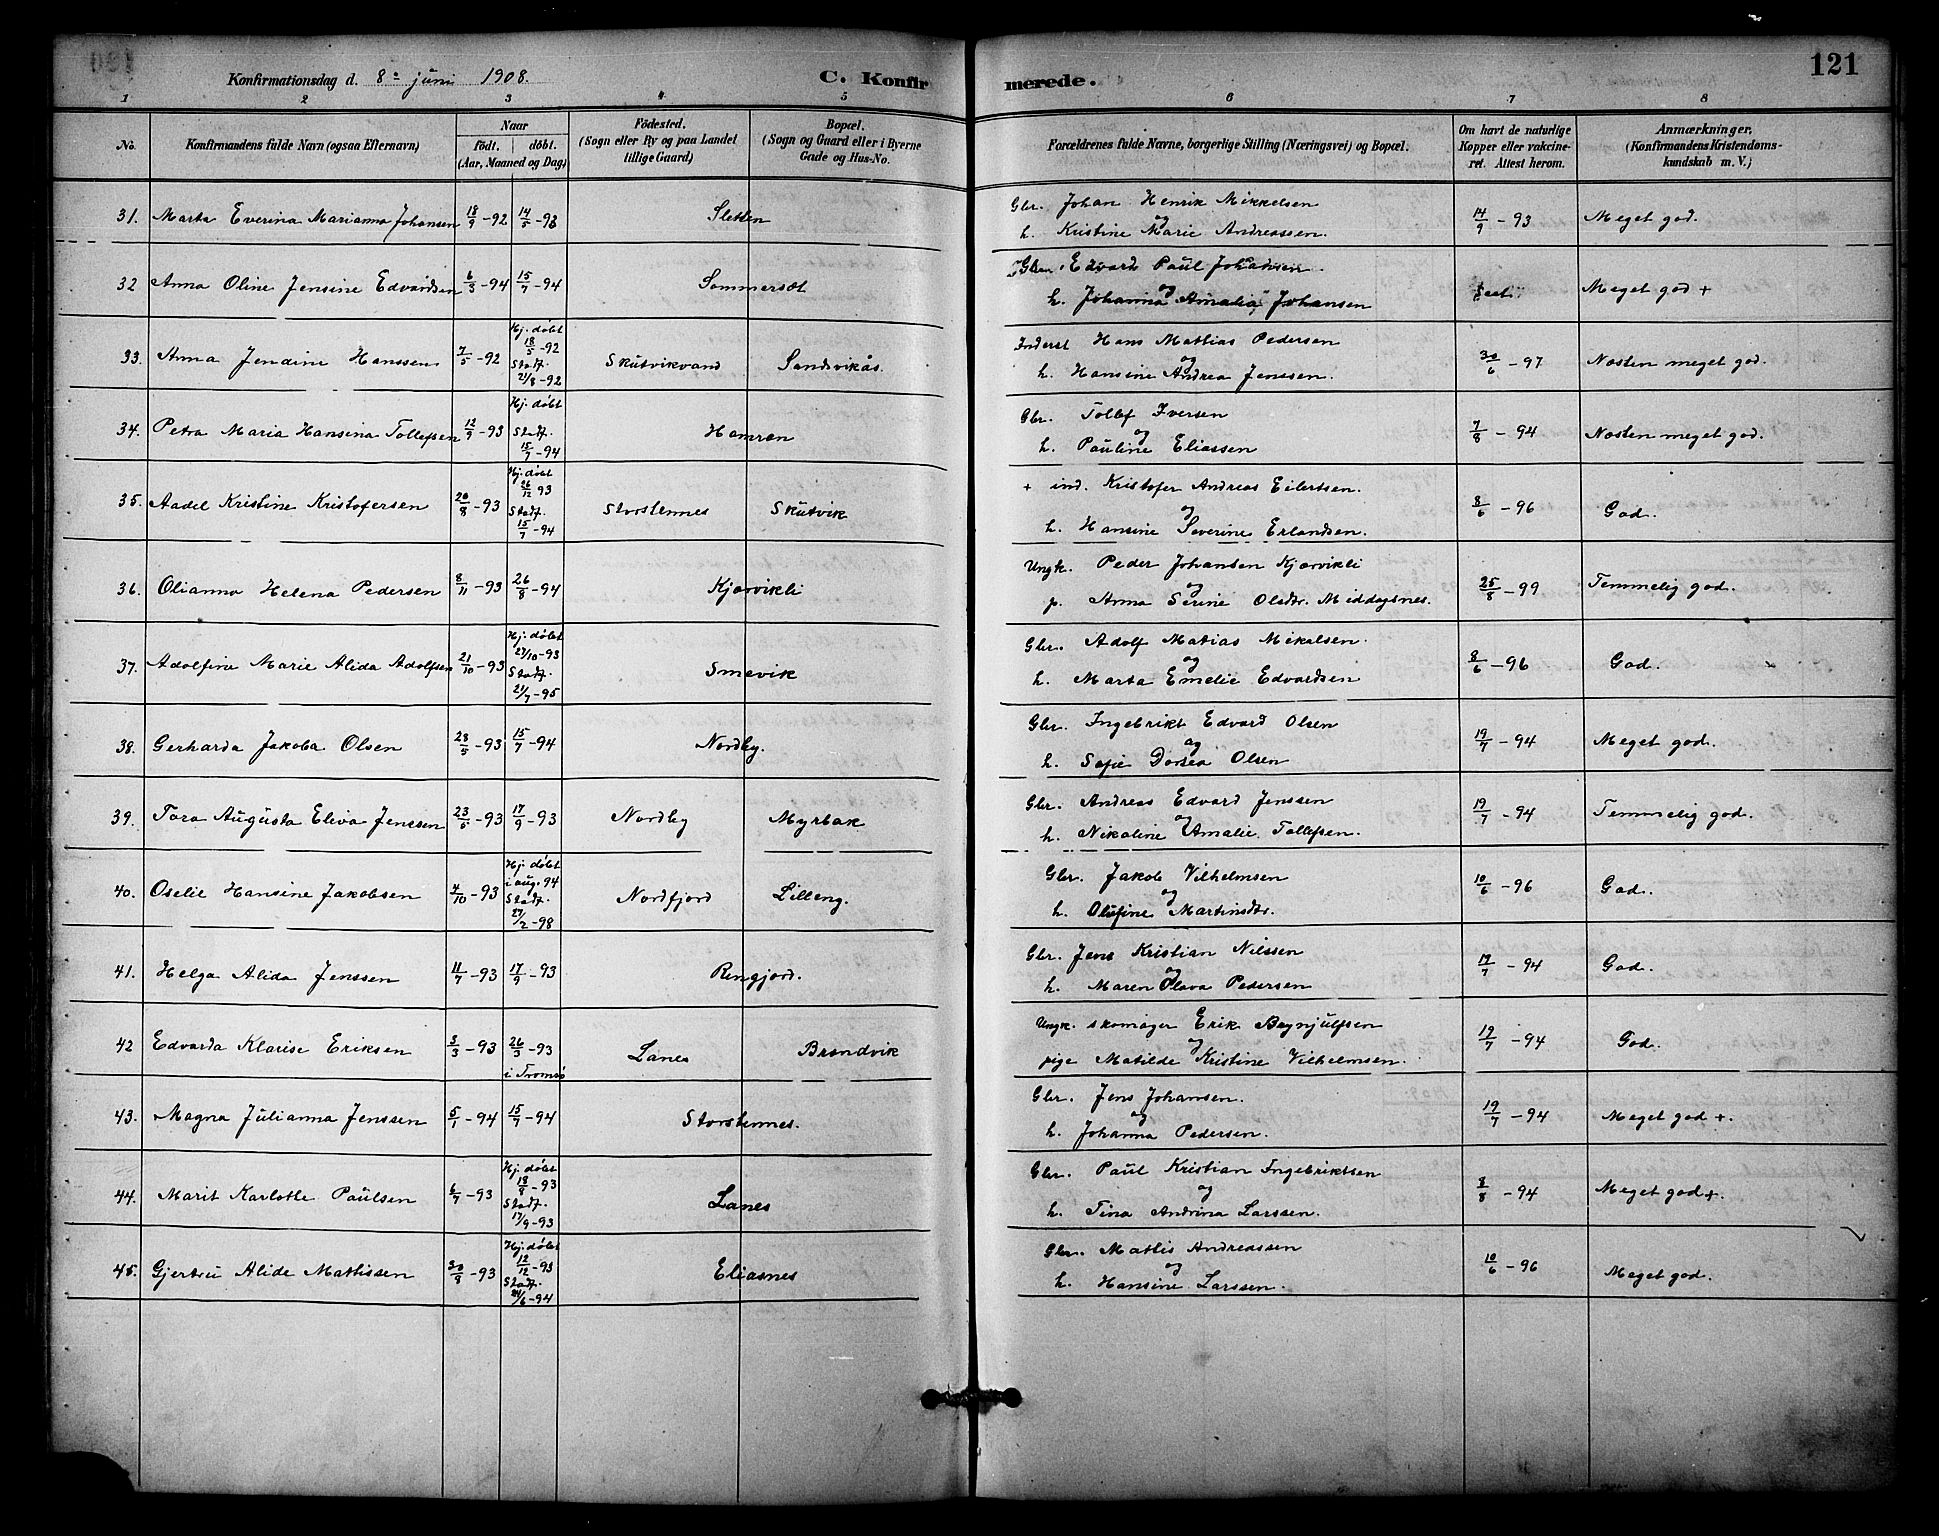 121
Konfirmationsdag d. 8de juni 1908. C. Konfirmerede.
1 2 3 4 5 6 7 8
No. Konfirmandens fulde Navn (ogsaa Efternavn) Naar født. døbt. (Aar, Maaned og Dag) Fødested. (Sogn eller By og paa Landet tillige Gaard) Bopæl. (Sogn og Gaard eller i Byerne Gade og Hus-No. Forældrenes fulde Navne, borgerlige Stilling (Næringsvei) og Bopæl. Om havt de naturlige Kopper eller vakcineret. Attest herom. Anmærkninger, (Konfirmandens Kristendomskundskab m. V.)
31. Marta Everina Marianna Johansen 18/9-92 14/5-93 Sletten Gbr. Johan Henrik Mikkelsen og h. Kristine Marie Andreassen. 14/9-93 Meget god.
32 Anna Oline Jensine Edvardsen 6/3-94 15/7-94 Sommersæt Edvard Paul Johansen og h. Johanna Amalia Johansen Meget god +
33. Anna Jendine Hanssen 7/5-92 Hj. døbt 18/5-92 Stadf. 21/8-92 Skutvikvand Sandvikås. Inderst Hans Mathias Pedersen og h. Hansine Andrea Jenssen. 30/6-97 Næsten meget god.
34. Petra Maria Hansina Tollefsen 12/9-93 Hj. døbt Stadf. 15/7-94 Hamran Gbr. Tollef Iversen og h. Pauline Eliassen 7/8-94 Næsten meget god.
35. Aadel Kristine Kristofersen 20/8-93 Hj. døbt 26/12 93 Stadf. 15/7-94 Storstennes Skutvik + ind. Kristofer Andreas Eilertsen. og h. Hansine Severine Erlandsen. 8/6-96 God.
36. Olianna Helena Pedersen 8/11-93 26/8-94 Kjærvikli Ungk. Peder Johansen Kjærvikli og p. Anna Serine Olsdtr. Middagsnes. 25/8-99 Temmelig god.
37. Adolfine Marie Alida Adolfsen 21/10-93 Hj. døbt 27/10-93 Stadf. 21/7-95 Smevik Gbr. Adolf Matias Mikalsen. og h. Marta Emelie Edvardsen 8/6-96 God.
38. Gerharda Jakoba Olsen 28/5-93 15/7-94 Nordby. Gbr. Ingebrikt Edvard Olsen og h. Sofie Dorsea Olsen 19/7-94 Meget god.
39. Tora Augusta Eliva Jenssen 23/5-93 17/9-93 Nordby Myrbak Gbr. Andreas Edvard Jenssen og h. Nikoline Amalie Tollefsen. 19/7-94 Temmelig god.
40. Oselie Hansine Jakobsen 4/10-93 Hj. døbt i aug. 94 Stadf. 27/2-98 Nordfjord Lilleng. Gbr. Jakob Vilhelmsen og h. Olufine Martinsdtr. 10/6-96 God.
41. Helga Alida Jenssen 11/7-93 17/9-93 Rengjord. Gbr. Jens Kristian Nilssen og h. Maren Olava Pedersen 19/7-94 God.
42 Edvarda Klarise Eriksen 3/3-93 26/3-93 i Tromsø Lanes Brandvik Ungk. skomager Erik Brynjulfsen og pige Matilde Kristine Vilhelmsen. 19/7-94 God.
43. Magna Julianna Jenssen 5/1-94 15/7-94 Storstennes. Gbr. Jens Johansen. og h. Johanna Pedersen. 19/7-94 Meget god +.
44. Marit Karlotte Paulsen 6/7-93 Hj. døbt 18/8-93 Stadf. 17/9-93 Lanes Gbr. Paul Kristian Ingebriktsen og h. Tina Andrina Larssen. 8/8-94 Meget god +.
45. Gjertru Alide Mathissen 30/9-93 Hj. døbt 12/12-93 Stadf. 24/6-94 Eliasnes Gbr. Mathis Andreassen og h. Hansine Larssen. 10/6-96 Meget god.